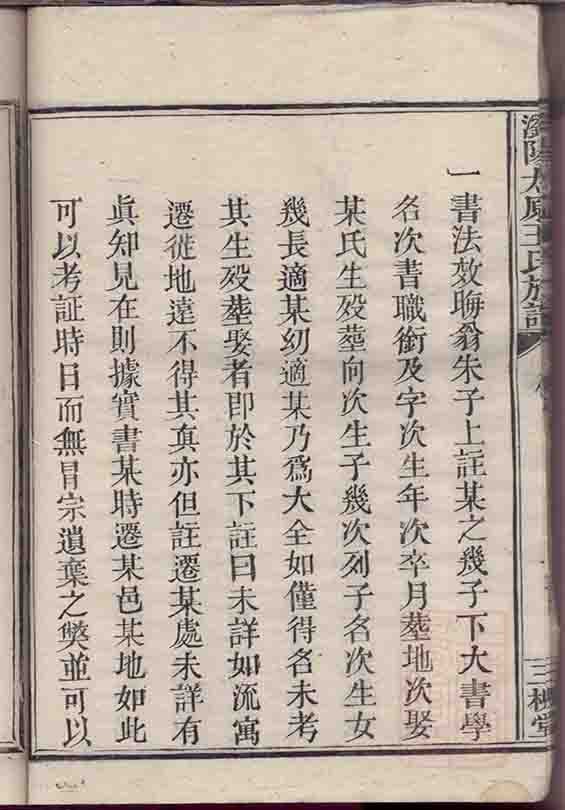 一書法效晦翁朱子上註某之幾子下大書學
名次書職銜及字次生年次卒月塟地次娶
某氏生殁塟向次生子幾次列子名次生女
幾長適某㓜適某乃爲大全如僅得名未考
其生殁塟娶者即於其下註曰未詳如流寓
遷徙地遠不得其真亦但註遷某處未詳有
眞知見在則據實書某時遷某邑某地如此
可以考証時日而無冒宗遺棄之獘並可以
陽太原王氏族譜
三槐堂